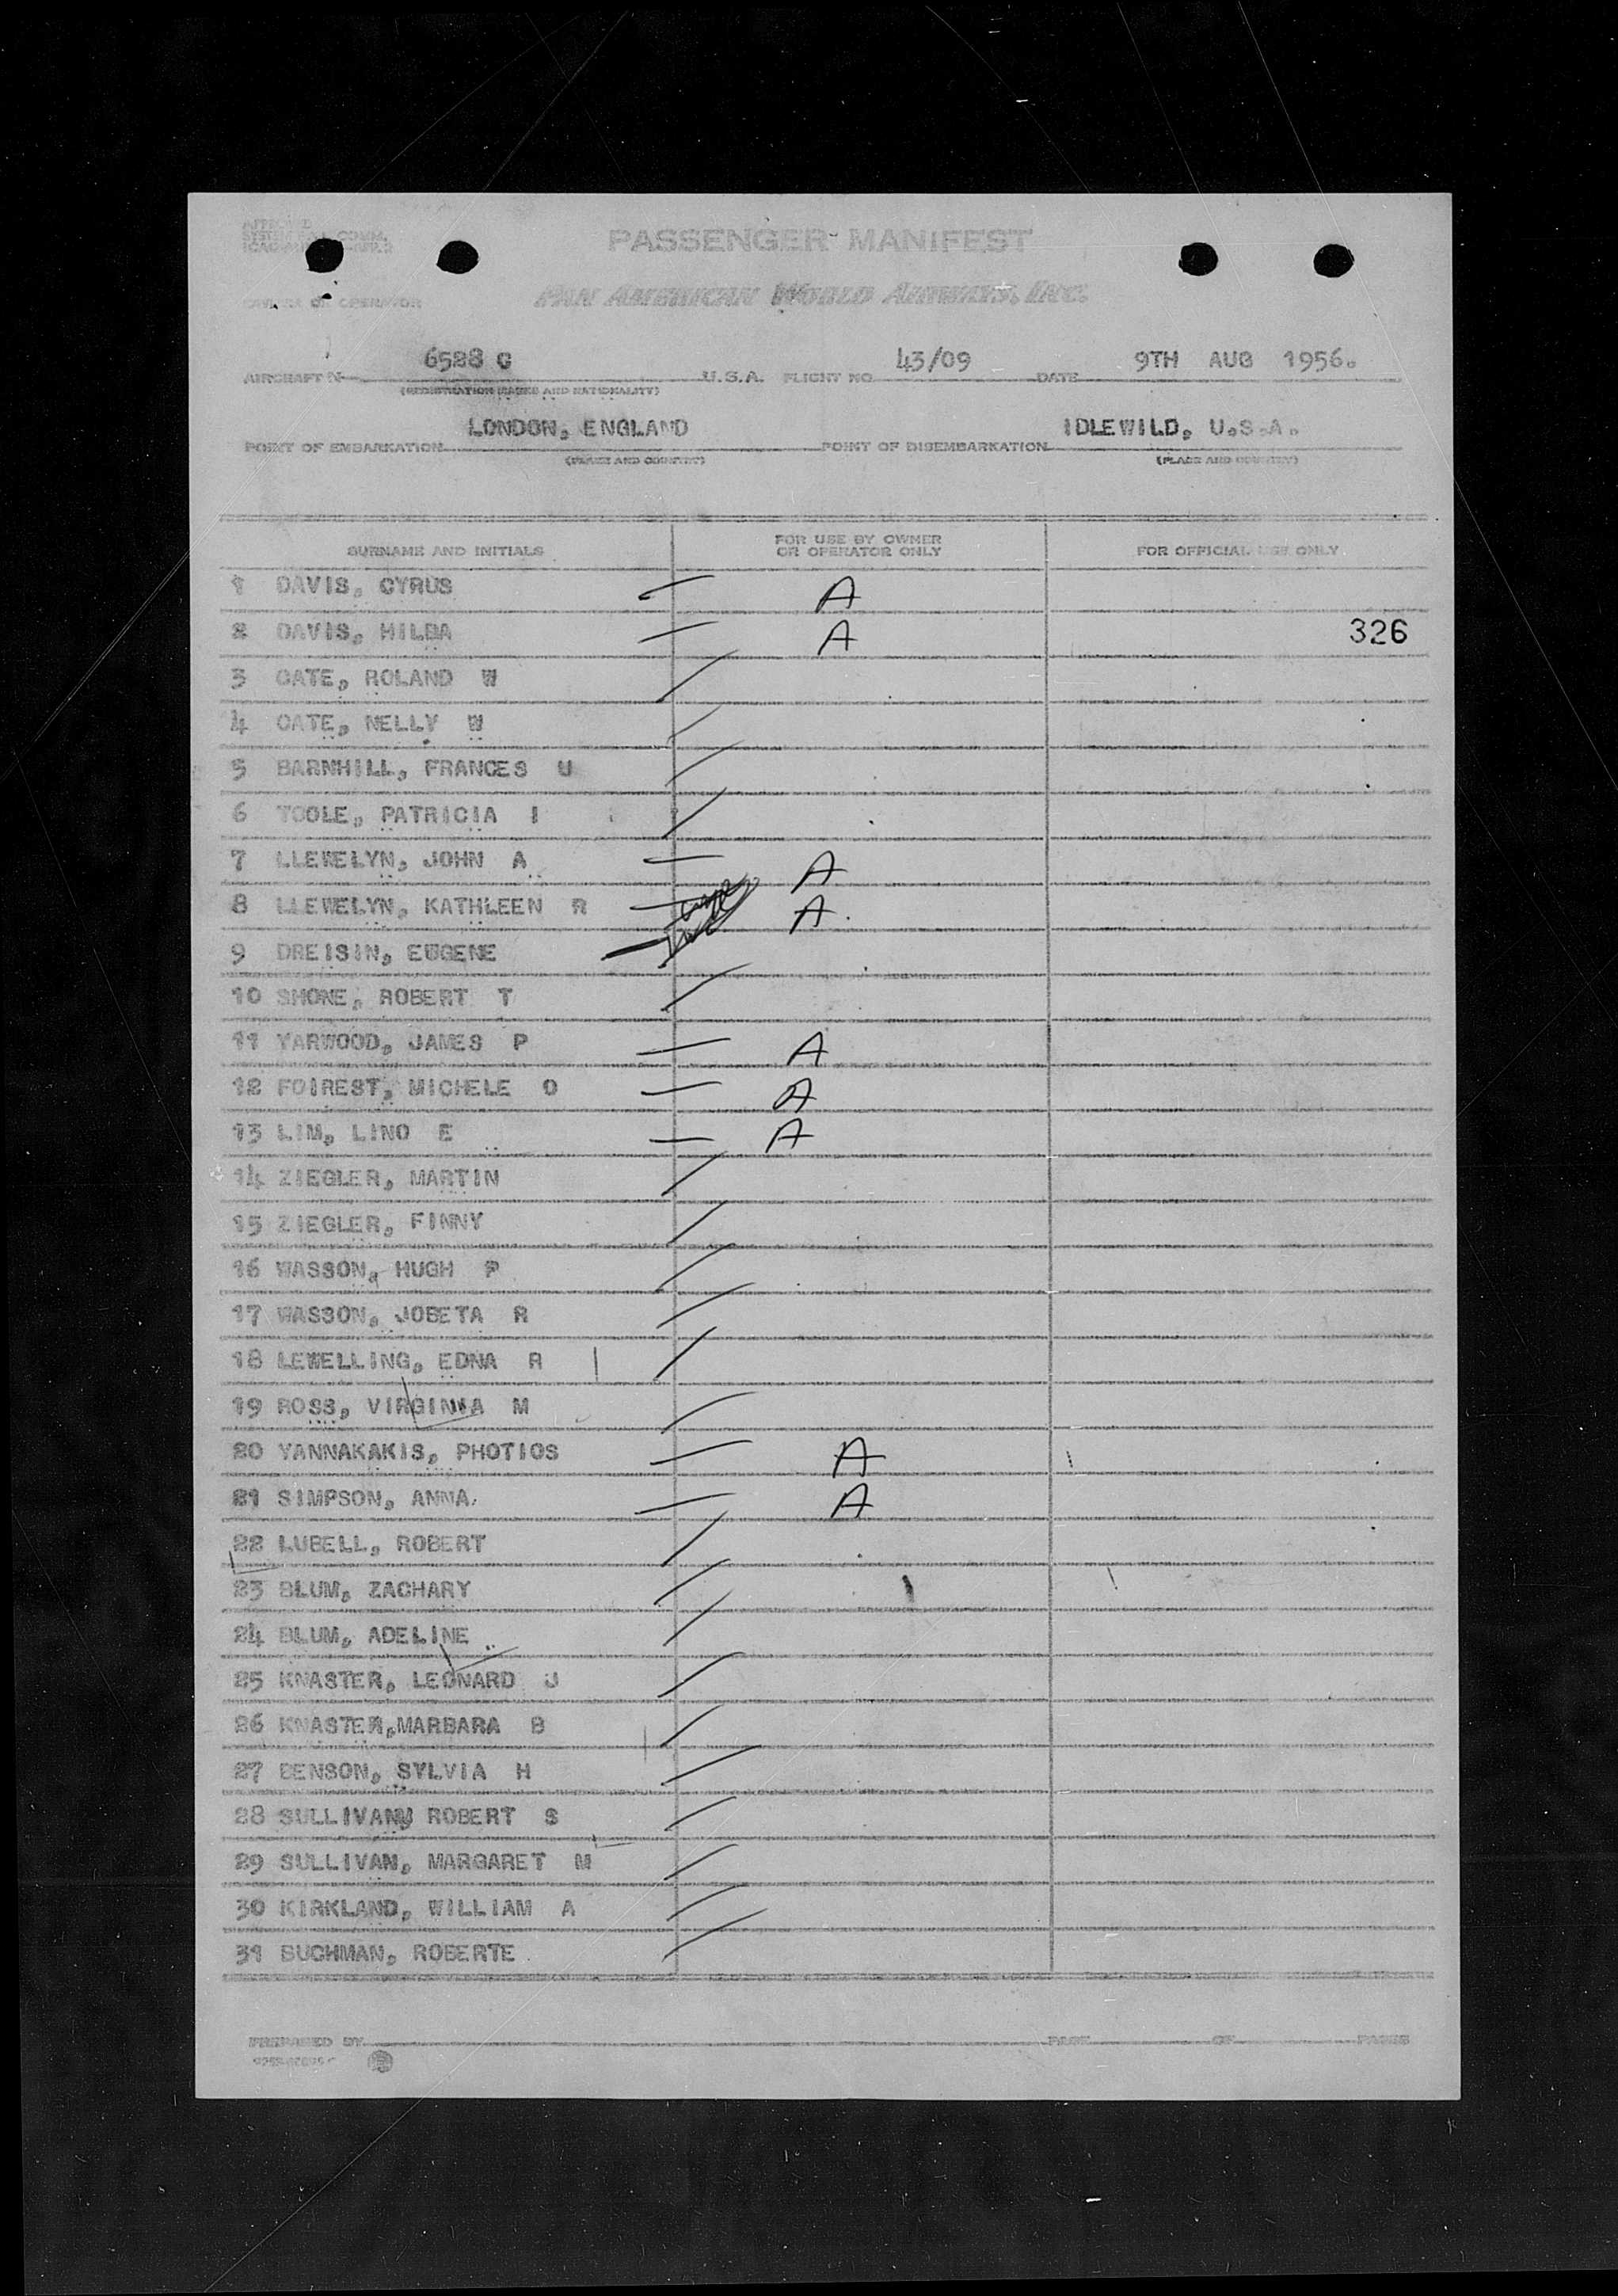 PASSENGER MANIFEST
OWNER OR OPERATOR PAN AMERICAN WORLD AIRWAYS, INC.
AIRCRAFT N 6528 C U.S.A. FLIGHT NO 43/09 DATE 9TH AUG 1956.
(REGISTRATION MARKS AND NATIONALITY)
POINT OF EMBARKATION LONDON, ENGLAND POINT OF DISEMBARKATION IDLEWILD, U.S.A.
(PLACE AND COUNTRY) (PLACE AND COUNTRY)
SURNAME AND INITIALS FOR USE BY OWNER OR OPERATOR ONLY FOR OFFICIAL USE ONLY
1 DAVIS, CYRUS A
2 DAVIS, HILDA A 326
3 CATE, ROLAND W
4 CATE, NELLY W
5 BARNHILL, FRANCES U
6 TOOLE, PATRICIA I
7 LLEWELYN, JOHN A A
8 LLEWELYN, KATHLEEN R A
9 DREISIN, EUGENE
10 SHONE, ROBERT T
11 YARWOOD, JAMES P A
12 FOIREST, MICHELE O A
13 LIM, LINO E A
14 ZIEGLER, MARTIN
15 ZIEGLER, FINNY
16 WASSON, HUGH P
17 WASSON, JOBETA R
18 LEWELLING, EDNA R
19 ROSS, VIRGINIA M
20 YANNAKAKIS, PHOTIOS A
21 SIMPSON, ANNA A
22 LUBELL, ROBERT
23 BLUM, ZACHARY
24 BLUM, ADELINE
25 KNASTER, LEONARD J
26 KNASTER,MARBARA B
27 BENSON, SYLVIA H
28 SULLIVAN, ROBERT S
29 SULLIVAN, MARGARET M
30 KIRKLAND, WILLIAM A
31 BUCHMAN, ROBERTE
PREPARED BY PAGE OF PAGES